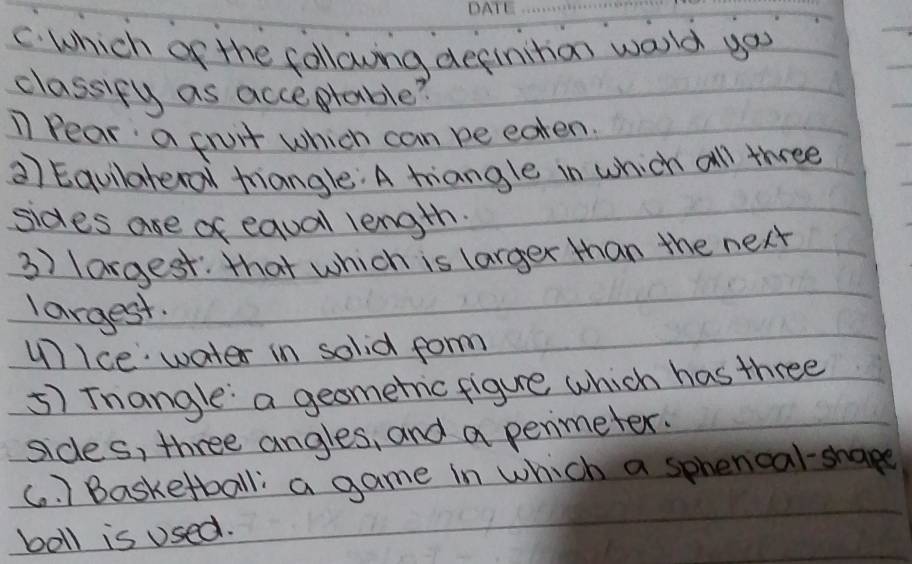 DATE
C. Which of the following definition would you
classify as acceptable?
1) Pear: a fruit which can be eaten.
2) Equilateral triangle: A triangle in which all three
sides are of equal length.
3) largest: that which is larger than the next
largest.
4) Ice: water in solid form
5) Triangle: a geometric figure which has three
sides, three angles, and a perimeter.
6.) Basketball: a game in which a spherical-shape
ball is used.